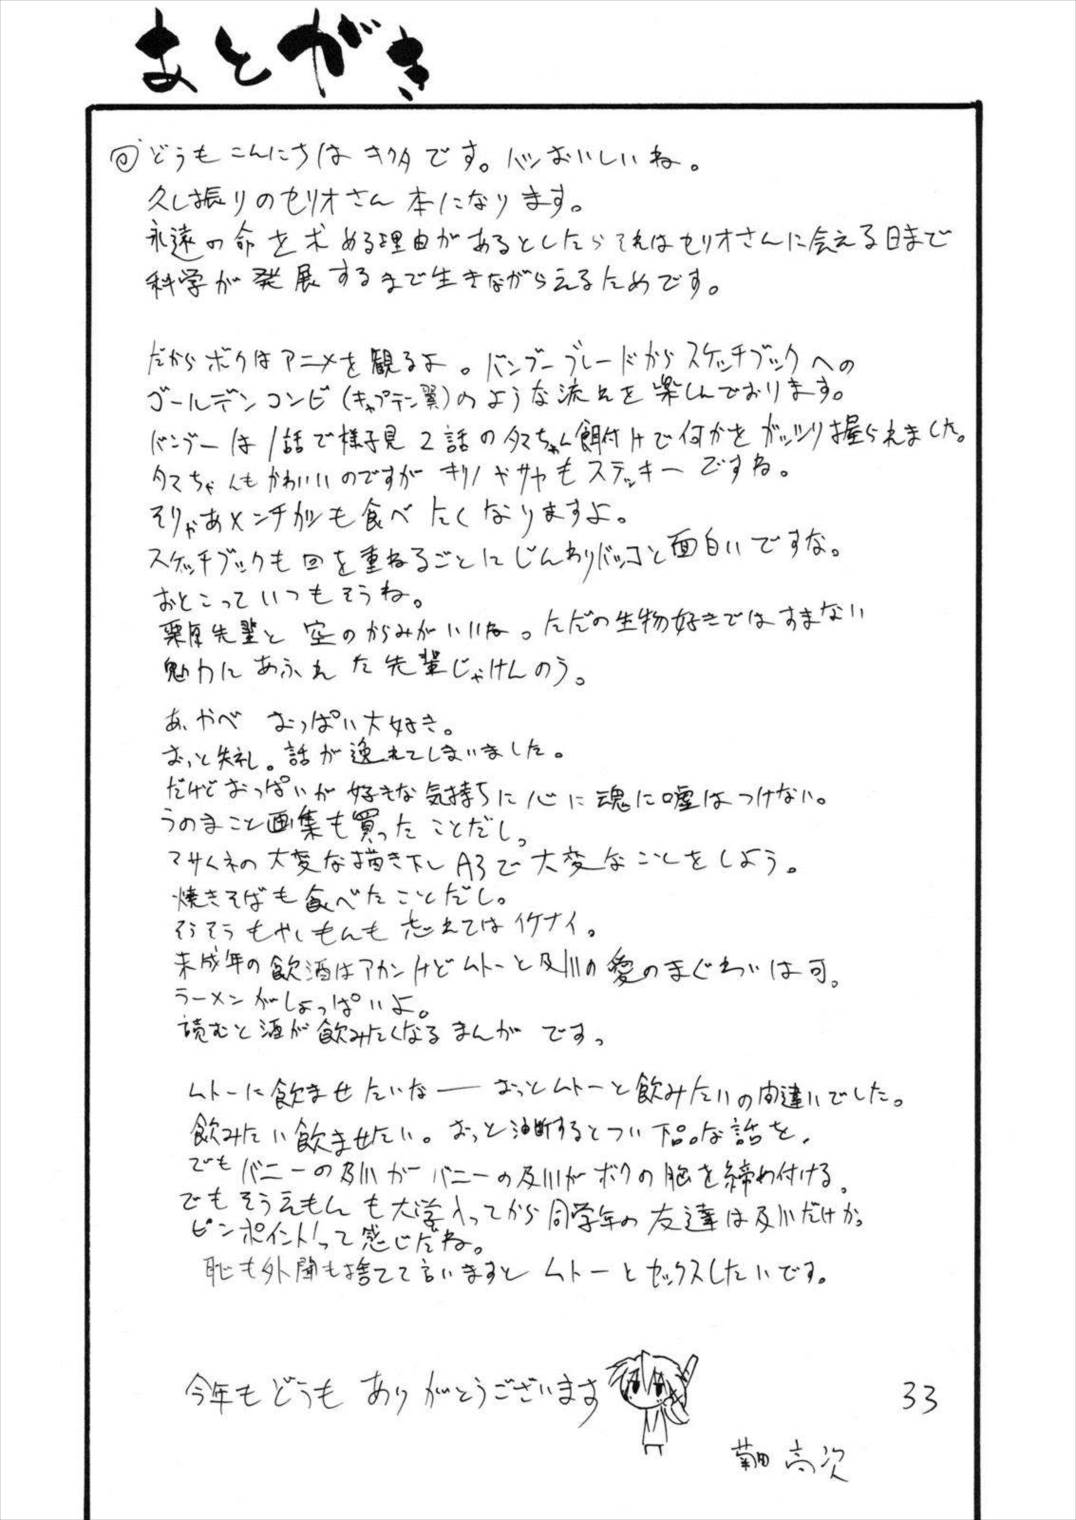 あとがき
どうもこんにちは キクタです。パンおいしいね。
久し振りのセリオさん 本になります。
永遠の命を求める理由があるとしたらそれはセリオさんに会える日まで
科学が発展するまで生きながらえるためです。
だからボクはアニメを観るよ。バンブーブレードからスケッチブックへの
ゴールデンコンビ(キャプテン翼)のような流れを楽しんでおります。
バンブーは1話で様子見 2話のタマちゃん餌付けで何かをガッツリ握られました。
タマちゃんもかわいいのですが キリノやサヤもステッキーですね。
そりゃあメンチカツも食べたくなりますよ。
スケッチブックも回を重ねるごとにじんわりバッコと面白いですな。
おとこっていつもそうね。
栗原先輩と 空のからみがいいね。ただの生物好きではすまない
魅力にあふれた先輩じゃけんのう。
あ、やべ おっぱい大好き。
おっと失礼。話が逸れてしまいました。
だけどおっぱいが 好きな気持ちに 心に 魂に嘘はつけない。
うのまこと画集も買ったことだし。
マサムネの大変な描き下しA3で大変なことをしよう。
焼きそばも食べたことだし。
そうそうもやしもんも 忘れてはイケナイ。
未成年の飲酒はアカンけどムトーと及川の愛のまぐわいは可。
ラーメンがしょっぱいよ。
読むと酒が飲みたくなるまんが です。
ムトーに飲ませたいなー おっとムトーと飲みたいの間違いでした。
飲みたい飲ませたい。おっと油断するとつい下品な話を。
でもバニーの及川が バニーの及川がボクの胸を締め付ける。
でもそうえもんも大学入ってから同学年の友達は及川だけか。
ピンポイントって感じだね。
恥も外聞も捨てて言いますと ムトーとセックスしたいです。
今年もどうもありがとうございます
33
菊田 高次